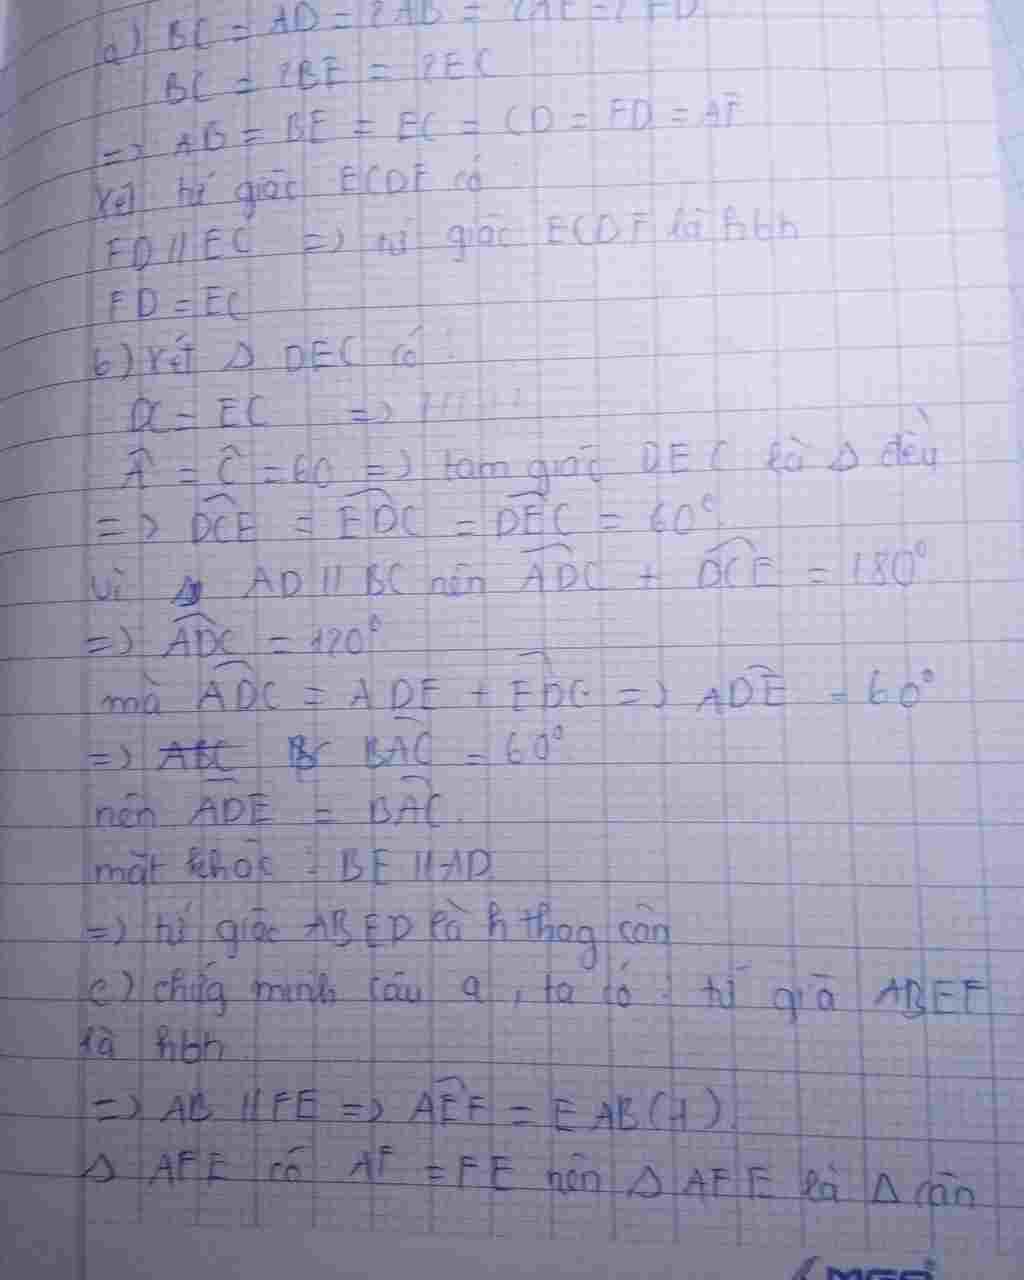 a) BC = AD = 2AB = 2AF = 2FD
BC = 2BE = 2EC
=> AB = BE = EC = CD = FD = AF
Xét tứ giác ECDF có
FD // EC => tứ giác ECDF là hbh
FD = EC
b) Xét Δ DEC có :
DC = EC =>
Â = Ĉ = 60 => tam giác DEC là Δ đều
=> DCE = EDC = DEC = 60°
Vì AD // BC nên ADC + DCE = 180°
=> ADC = 120°
mà ADC = ADE + EDC => ADE = 60°
=> BAC = 60°
nên ADE = BAC.
mặt khác : BE // AD
=> tứ giác ABED là h thag cân
c) chứg minh câu a, ta có : tứ giá ABEF
là hbh
=> AB // FE => AEF = EAB (1)
Δ AFE có AF = FE nên Δ AFE là Δ cân